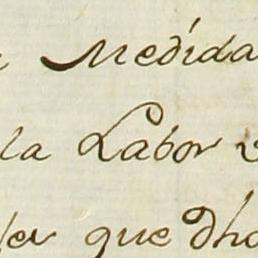 Medida
la Labor
que dho